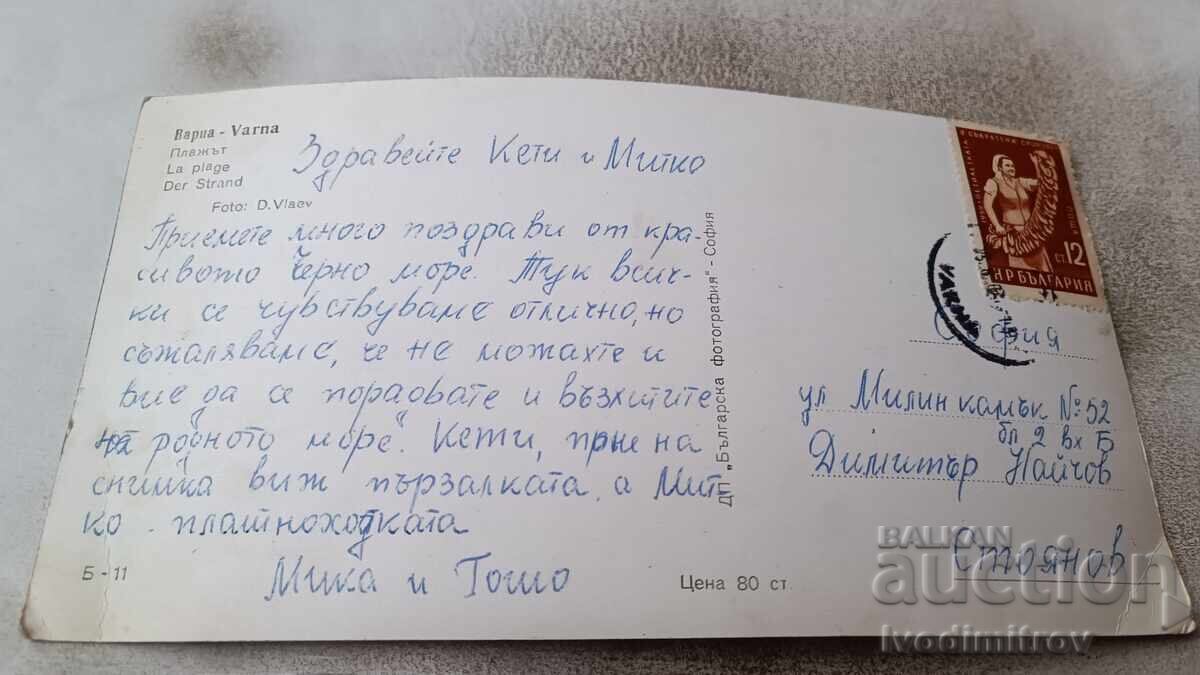 Варна - Varna
Плажът
La plage
Der Strand
Foto: D. Vlaev
Здравейте Кети и Митко
Приемете много поздрави от кра-
сивото Черно море. Тук всич-
ки се чувствуваме отлично, но
съжаляваме, че не можахте и
вие да се порадвате и възхитите
на родното море. Кети, ти на
снимка виж пързалката, а Мит-
ко - платноходката
Мика и Гошо
Б - 11
Цена 80 ст.
ДП „Българска фотография" - София
СТ. 12
НР БЪЛГАРИЯ
VARNA
София
ул Милин камък № 52
бл 2 вх Б
Димитър Найчов
Стоянов
BALKAN
auction
Ivodimitrov